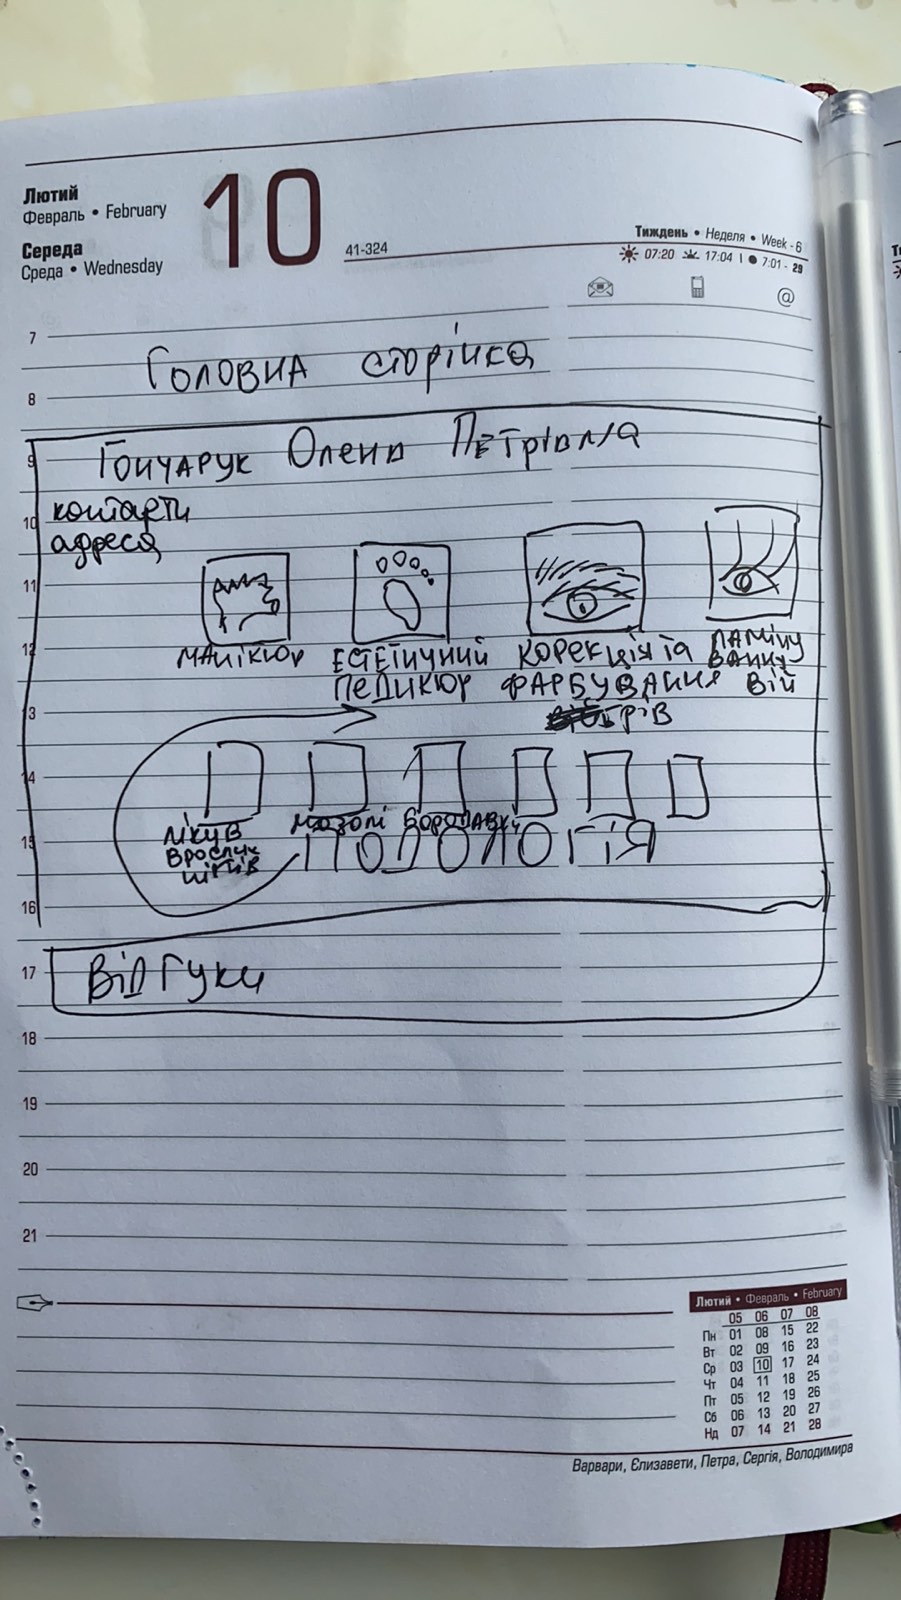 Лютий
Февраль • February
Середа
Среда • Wednesday
10
41-324
Тиждень • Неделя • Week - 6
07:20 17:04 | 7:01 - 29
@
7
Головна сторінка
8
9 Гончарук Олена Петрівна
контакти
10
адреса
11
12 манікюр
ЕСТЕТИЧНИЙ ПЕДИКЮР
КОРЕКЦІЯ та ФАРБУВАННЯ брів
ЛАМІНУВАННЯ ВІЙ
13
14
лікув вросших нігтів
мозолі бородавки
15 ПОДОЛОГІЯ
16
17 Відгуки
18
19
20
21
Лютий • Февраль • February
05 06 07 08
Пн 01 08 15 22
Вт 02 09 16 23
Ср 03 10 17 24
Чт 04 11 18 25
Пт 05 12 19 26
Сб 06 13 20 27
Нд 07 14 21 28
Варвари, Єлизавети, Петра, Сергія, Володимира